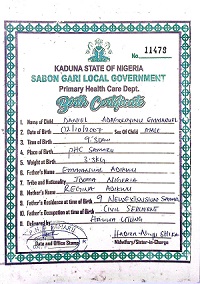 No. 11479
KADUNA STATE OF NIGERIA
SABON GARI LOCAL GOVERNMENT
Primary Health Care Dept.
Birth Certificate
1. Name of Child DANIEL EMMANUEL
2. Date of Birth 02/10/2007 Sex Of Child MALE
3. Time of Birth 9:30am
4. Place of Birth PHC SAMARU
5. Weight of Birth 3.3kg
6. Father's Name EMMANUEL
7. Tribe and Nationality IDOMA NIGERIA
8. Mother's Name REGINA
9. Father's Residence at time of Birth 9 NEW EXTENSION SAMARU
10. Father's Occupation at time of Birth CIVIL SERVANT
11. Delivered by
Date and Office Stamp
Midwifery/Sister-in-Charge